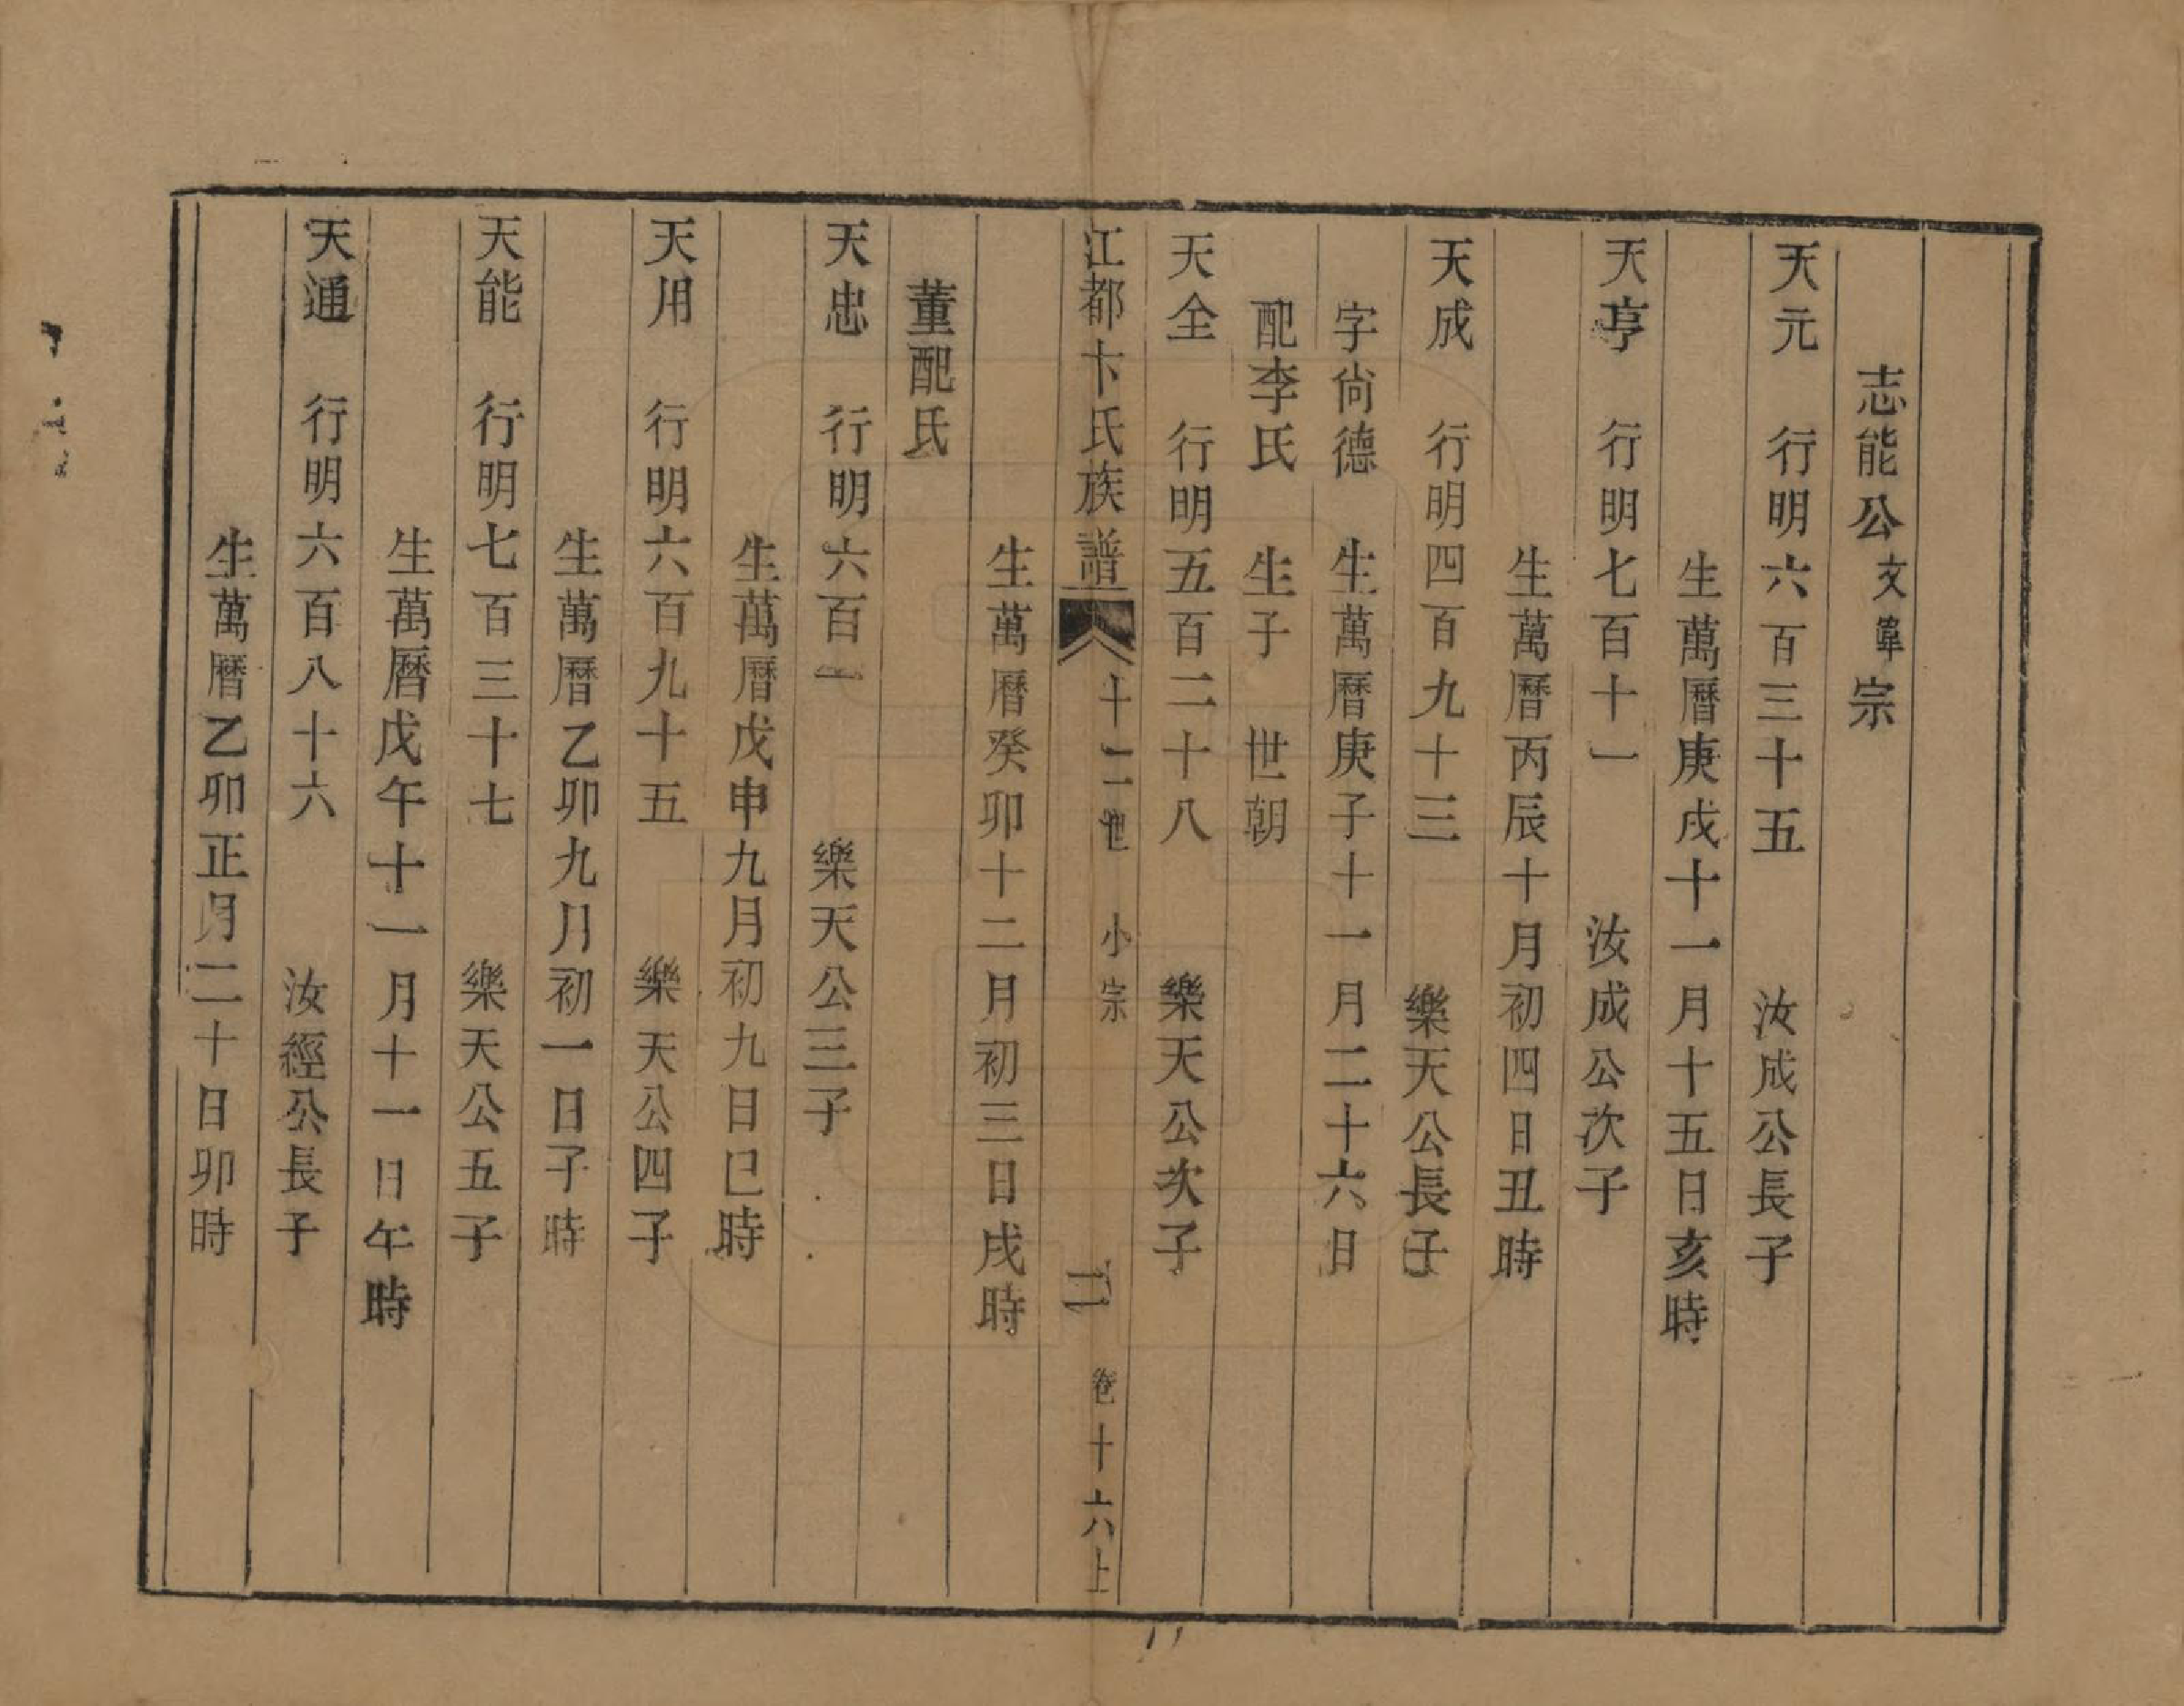 志能公文韋宗
天元 行明六百三十五 汝成公長子
生萬曆庚戌十一月十五日亥時
天亨 行明七百十一 汝成公次子
生萬曆丙辰十月初四日丑時
天成 行明四百九十三 樂天公長子
字尙德 生萬曆庚子十一月二十六日
配李氏 生子 世朝
天全 行明五百二十八 樂天公次子
江都卞氏族譜 十二世 小宗 二 卷十六上
生萬曆癸卯十二月初三日戌時
董配氏
天忠 行明六百 樂天公三子
生萬曆戊申九月初九日巳時
天用 行明六百九十五 樂天公四子
生萬曆乙卯九月初一日子時
天能 行明七百三十七 樂天公五子
生萬曆戊午十一月十一日午時
天通 行明六百八十六 汝經公長子
生萬曆乙卯正月二十日卯時